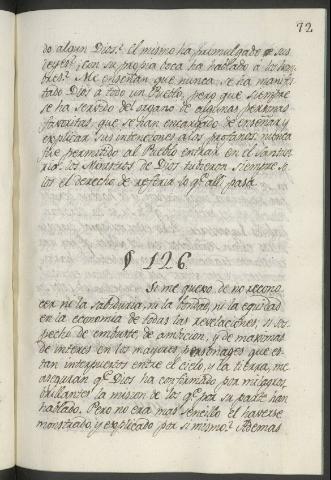 72
do algun Dios? el mismo ha promulgado sus
leyes? con su propia boca ha hablado á los hom-
bres? Me enseñan que nunca se ha manifes-
tado Dios á todo un Pueblo, pero que siempre
se ha servido del organo de algunas personas
favoritas, que se han encargado de enseñar y
explicar sus intenciones a los profanos: nunca
fue permitido al Pueblo entrar en el Santua-
rio: los Ministros de Dios tubieron siempre so-
los el derecho de referir lo q.e alli pasa.
§ 126.
Si me quexo de no recono-
cer ni la sabiduria, ni la bondad, ni la equidad
en la economia de todas las revelaciones; si sos-
pecho de embuste, de ambicion, y de maximas
de interes en los mayores personages que es-
tan interpuestos entre el cielo, y la tierra, me
aseguran q.e Dios ha confirmado por milagros
brillantes la mision de los q.e por su parte han
hablado. Pero no era mas sencillo el haverse
monstrado, y explicado por si mismo? Ademas